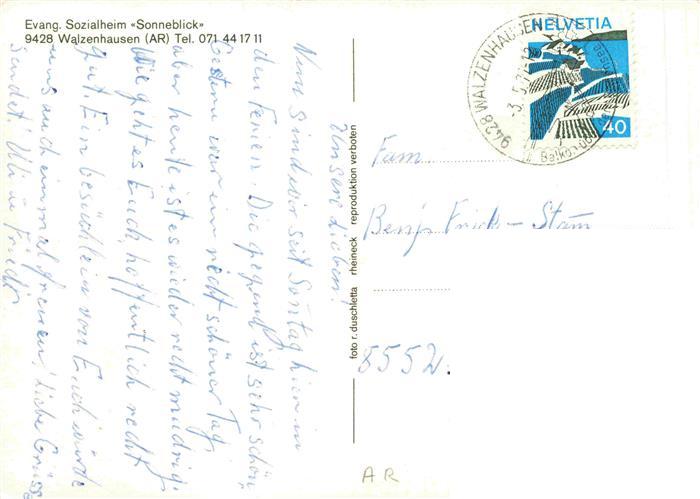 Evang. Sozialheim «Sonneblick»
9428 Walzenhausen (AR) Tel. 071 44 17 11
Unsere Lieben!
Nun sind wir seit Sonntag hier in
den Ferien. Die gegend ist sehr schön,
Gestern war ein recht schöner Tag,
aber heute ist es wieder recht mudrig.
Wie geht es Euch, hoffentlich recht
gut. Ein besüchlein von Euch würde
uns auch einmal freuen, Liebe Grüsse
sendet Ueli u Friedi
foto r. duschletta rheineck reproduktion verboten
9428 WALZENHAUSEN
-3.5.
Balkon
HELVETIA
40
Fam
Benj. Frick - Stam
8552
AR